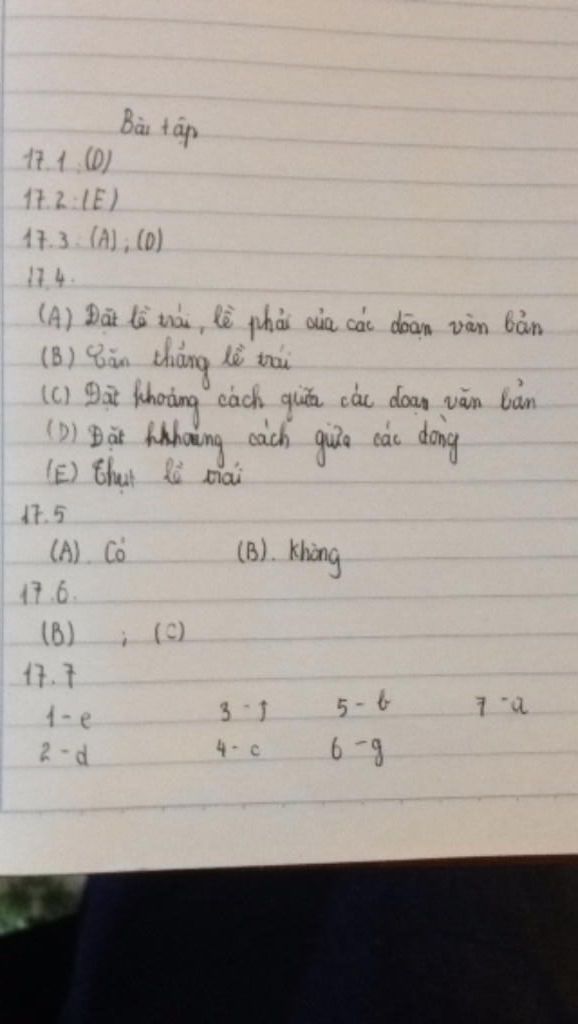 Bài tập
17.1:(D)
17.2:(E)
17.3:(A);(D)
17.4.
(A) Đặt lề trái, lề phải của các đoạn văn bản
(B) Căn thẳng lề trái
(C) Đặt khoảng cách giữa các đoạn văn bản
(D) Đặt khoảng cách giữa các dòng
(E) Thụt lề trái
17.5
(A). Có (B). Không
17.6.
(B) ; (C)
17.7
1-e 3-f 5-b 7-a
2-d 4-c 6-g